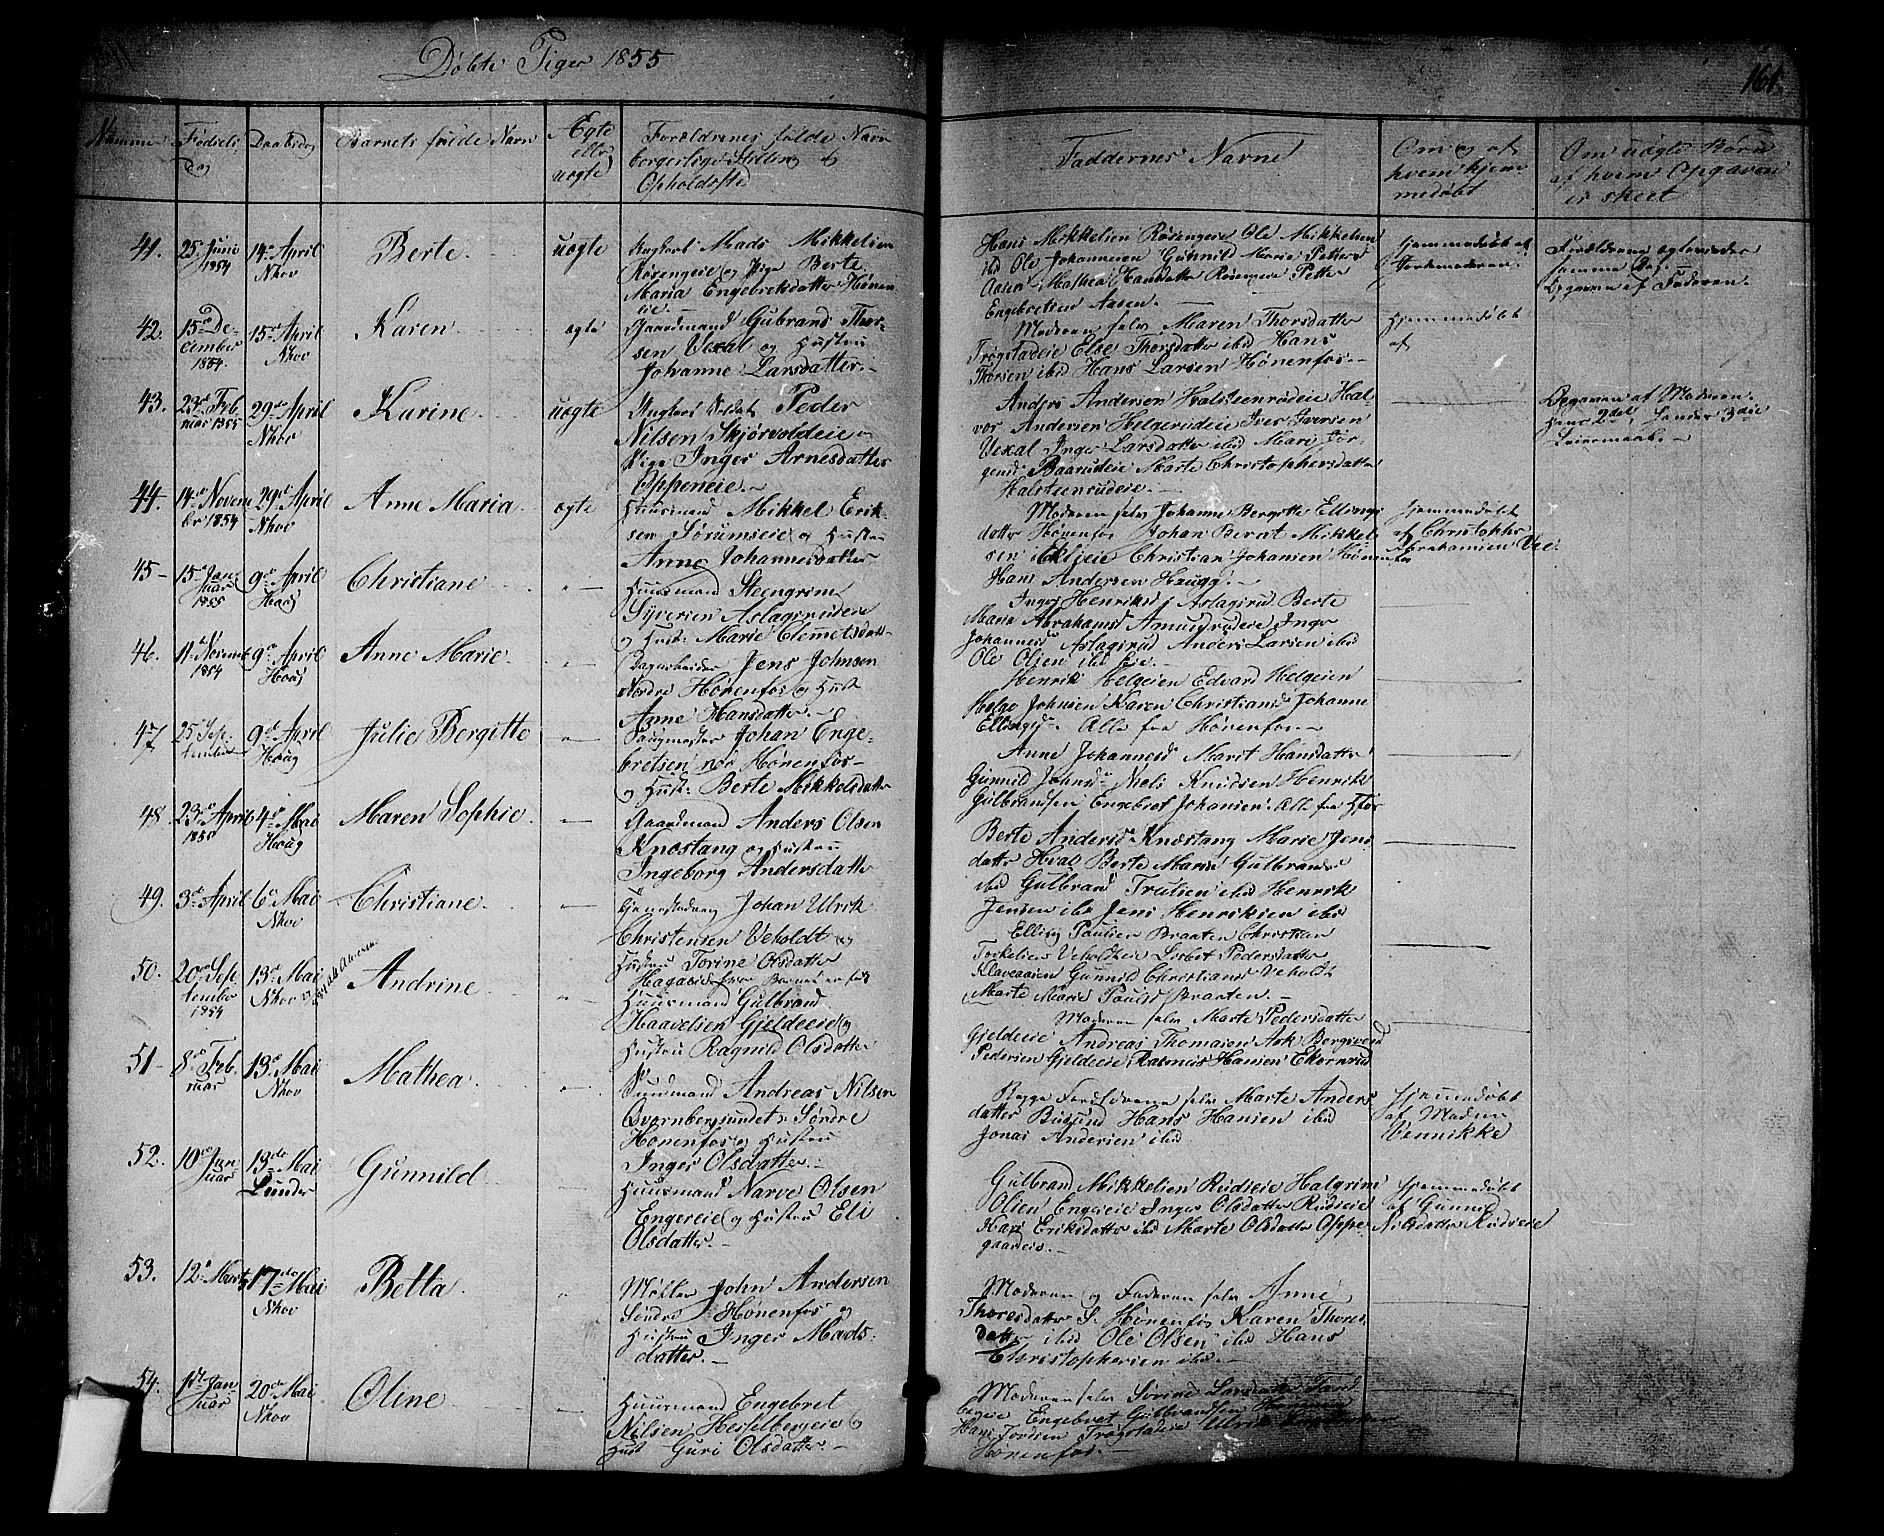 Døbte Piger 1855
161.
Numer
Fødsels
Dag
Daabsdag
Barnets fulde Navn
Ægte
eller
uægte
Forældrenes fulde Navn
borgerlige Stilling og
Opholdssted
Faddernes Navne
Om og af
hvem hjem-
medøbt
Om uægte Børn
af hvem Opgaven
er skeet
41.
25 Juni
1854
14 April
Nhov
Berte
uægte
Ungkarl Mads Mikkelsen
Rosengeie og Pige Berte
Maria Engebretsdatter Hønen-
eie.
Hans Mikkelsen Rosengeie Ole Mikkelsen
ibid Ole Johannesen Gunnil Marie Petters
Aasen Mathea Hansdatter Rosengeie Petter
Engebretsen Aasen.
Hjemmedøbt af
Jordemoderen.
Forældrene ægteviede
samme Dag.
Opgaven af Faderen.
42.
15 De-
cember
1854.
15 April
Nhov
Karen
ægte
Gaardmand Gubrand Thor-
sen Vexal og Hustru
Johanne Larsdatter.
Moderen selv Maren Thorsdatter
Trøgstadeie Else Thorsdatter ibid Hans
Thorsen ibid Hans Larsen Hønenfos.
Hjemmedøbt
af
43.
23 Feb
ruar 1855
29 April
Nhov
Karine
uægte
Ungkarl Soldat Peder
Nilsen Skjørvoldeie og
Pige Inger Arnesdatter
Oppeneie.
Anders Andersen Halsteenrudeie Hal
vor Andersen Helgerudeie Iver Iversen
Vexal Inger Larsdatter ibid Mari Jør-
gensd Baarudeie Marte Christophersdatter
Halsteenrudeie.
Opgaven af Moderen.
Hans 2det, Hendes 3die
Leiermaal.
44.
14 Novem
br 1854
29 April
Nhov
Anne Maria
ægte
Huusmand Mikkel Erik-
sen Sørumseie og Hustru
Anne Johannesdatter
Moderen selv Johanne Bergitte Ellings
datter Hønenfos Johan Berat Mikkel
sen Christian Johansen Hønenfos
Hans Andersen Haugg.
Hjemmedøbt
af Christopher
Abrahamsen
45
15 Jan
uar
1855
9 April
Haug
Christiane
Huusmand Steengrim
Syversen Aslagsrudeie
og Hust: Marie Clemetsdatt
Inger Henriksd Aslagsrud Berte
Marie Abrahamsd Inger
Johannesd Aslagsrud Anders Larsen ibid
Ole Olsen ibid Eie.
46.
11 Novemb
1854
9 April
Haug
Anne Marie
Dagarbeider Jens Johnsen
Nordre Hønenfos og Hust
Anne Hansdatter.
Henrik Helgesen Edvard Helgesen
Helge Johnsen Karen Christiansd Johanne
Ellingsd Alle fra Hønenfos.
47
25 Sep-
tember
9 April
Haug
Julie Bergitte
Saugmester Johan Enge-
bretsen nor Hønenfos
og Hust: Berte Mikkelsdatter
Anne Johannesd Marit Hansdatter
Gunnild Johnsd Niels Knudsen Henrik
Gulbrandsen Engebret Johansen. Alle fra Hfos
48
23 April
1855
4 Mai
Haug
Maren Sophie
Gaardmand Anders Olsen
Knestang og Hustru
Ingeborg Andersdatter
Berte Andersd Knæstang Marie Jens
datter Hval Berte Marie Gulbrands
ibid Gulbrand Trulsen ibid Henrik
Jensen ibid Jens Henriksen ibid
49.
3 April
6 Mai
Nhov
Christiane
Johan Ulrik
Christensen Veholdt og
Hustru Torine Olsdatter
Elling Paulsen Braaten Christian
Torkelsen Veholdteie Lisbet Pedersdatter
Klaveaaen Gunnild Christiansd Veholdt
Marte Marie Paulsd Braaten.
50.
20 Sep
tember
1854
13 Mai
Nhov
Andrine
Huusmand Gulbrand
Haavelsen Gjeldeeie og
Hustru Ragnild Olsdatter
Moderen selv Marte Pedersdatter
Gjeldeeie Andreas Thomasen Ask
Pedersen Gjeldeeie Rasmus Hansen Ekornrud
51
8 Feb.
ruar
13 Mai
Nhov
Mathea
Sundmand Andreas Nilsen
Qvernbergsundet Søndre
Hønenfos og Hustru
Inger Olsdatter.
Begge Forældrene selv Marte Anders
datter Busund Hans Hansen ibid
Jonas Andersen ibid
Hjemmedøbt
af Madm
Vennikke
52.
10 Jan
uar
13de Mai
Lunder
Gunnild
Huusmand Narve Olsen
Engereie og Hustru Eli
Olsdatter.
Gulbrand Mikkelsen Rudseie Halgrim
Olsen Engereie Inger Olsdatter Rudseie
Kari Eriksdatter ibid Marte Olsdatter Oppe
gaardeie.
Hjemmedøbt
af Gunnild
Nilsdatter Rudseie
53.
12 Marts
17de Mai
Nhov
Betta
Møller John Andersen
Søndre Hønenfos og
Hustru Inger Mads-
datter.
Moderen og Faderen selv Anne
Thoresdatter S. Hønenfos Karen Thores
datter ibid Ole Olsen ibid Hans
Christophersen ibid.
54.
1 Jan
uar
20de Mai
Nhov
Oline
Huusmand Engebret
Nilsen Hesselbergeie og
Hust Guri Olsdatter
Moderen selv Sørine Larsdatter
Engebret Gulbrandsen
Hans Jordsen Trøgstadeie Ulrik
Hønenfos.